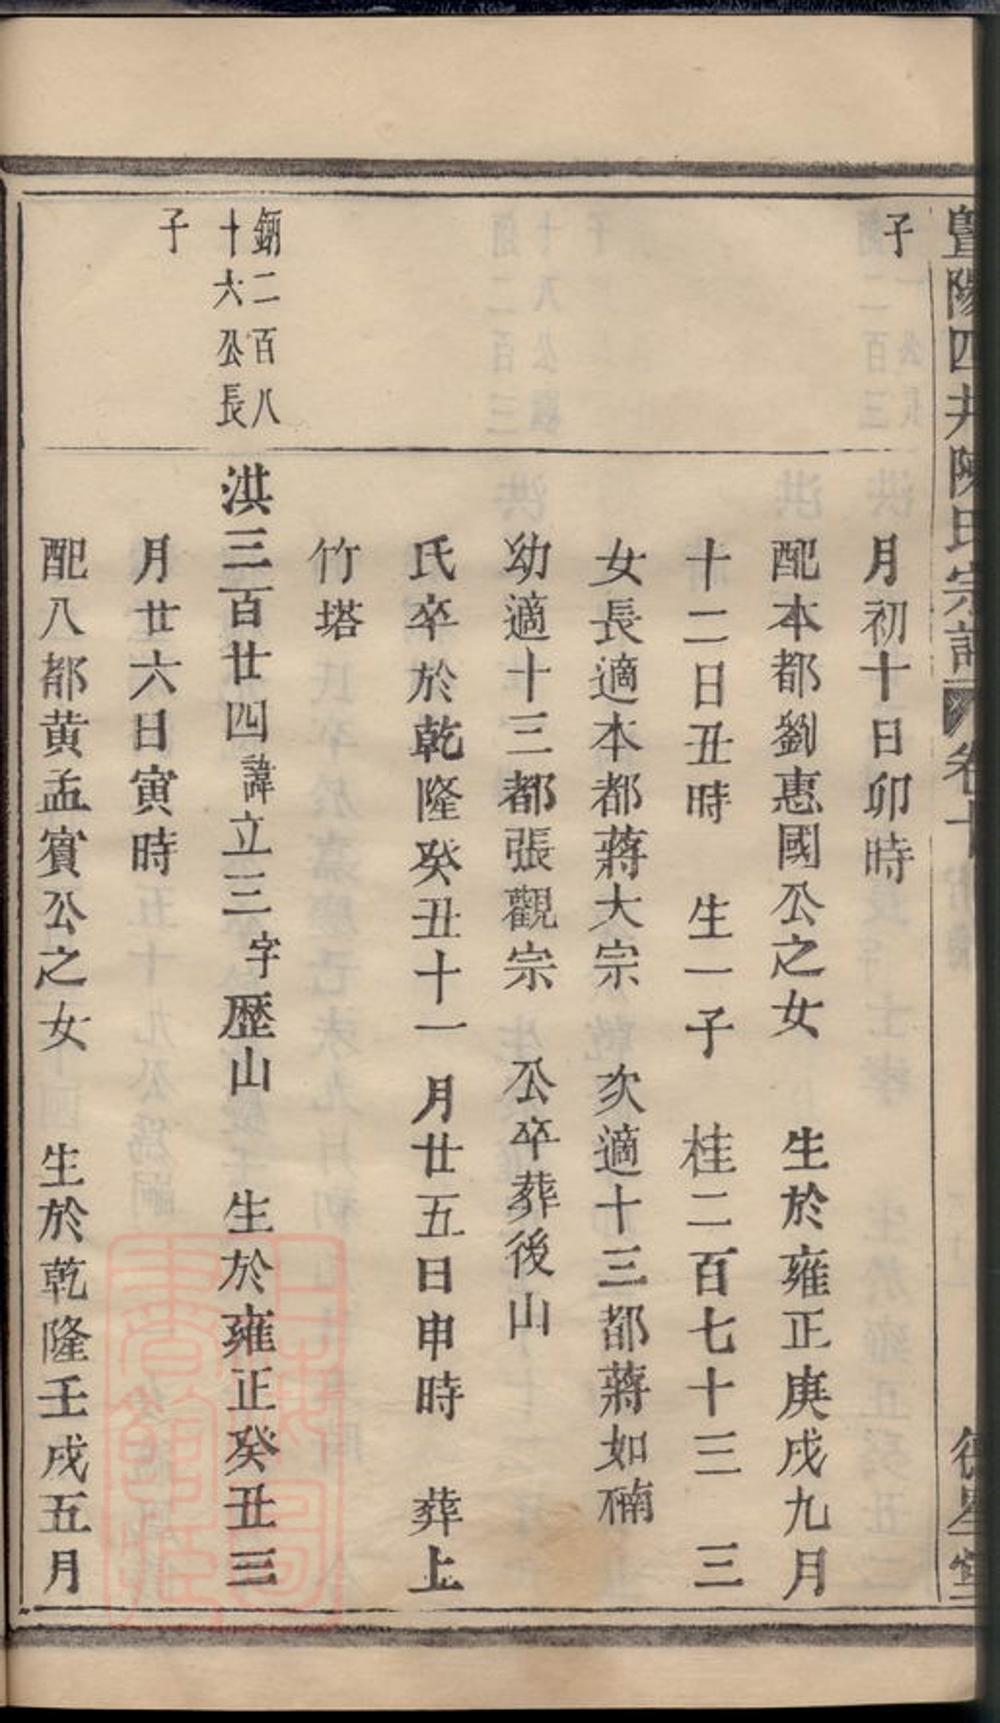 暨陽四井陳氏宗譜 卷十
子
月初十日卯時
配本都劉惠國公之女 生於雍正庚戌九月
十二日丑時 生一子 桂二百七十三 三
女長適本都蔣大宗 次適十三都蔣如楠
幼適十三都張觀宗 公卒葬後山
氏卒於乾隆癸丑十一月廿五日申時 葬上
竹塔
二百八
十六公長
洪三百廿四諱立三字歷山 生於雍正癸丑三
子
月廿六日寅時
配八都黄孟賓公之女 生於乾隆壬戌五月